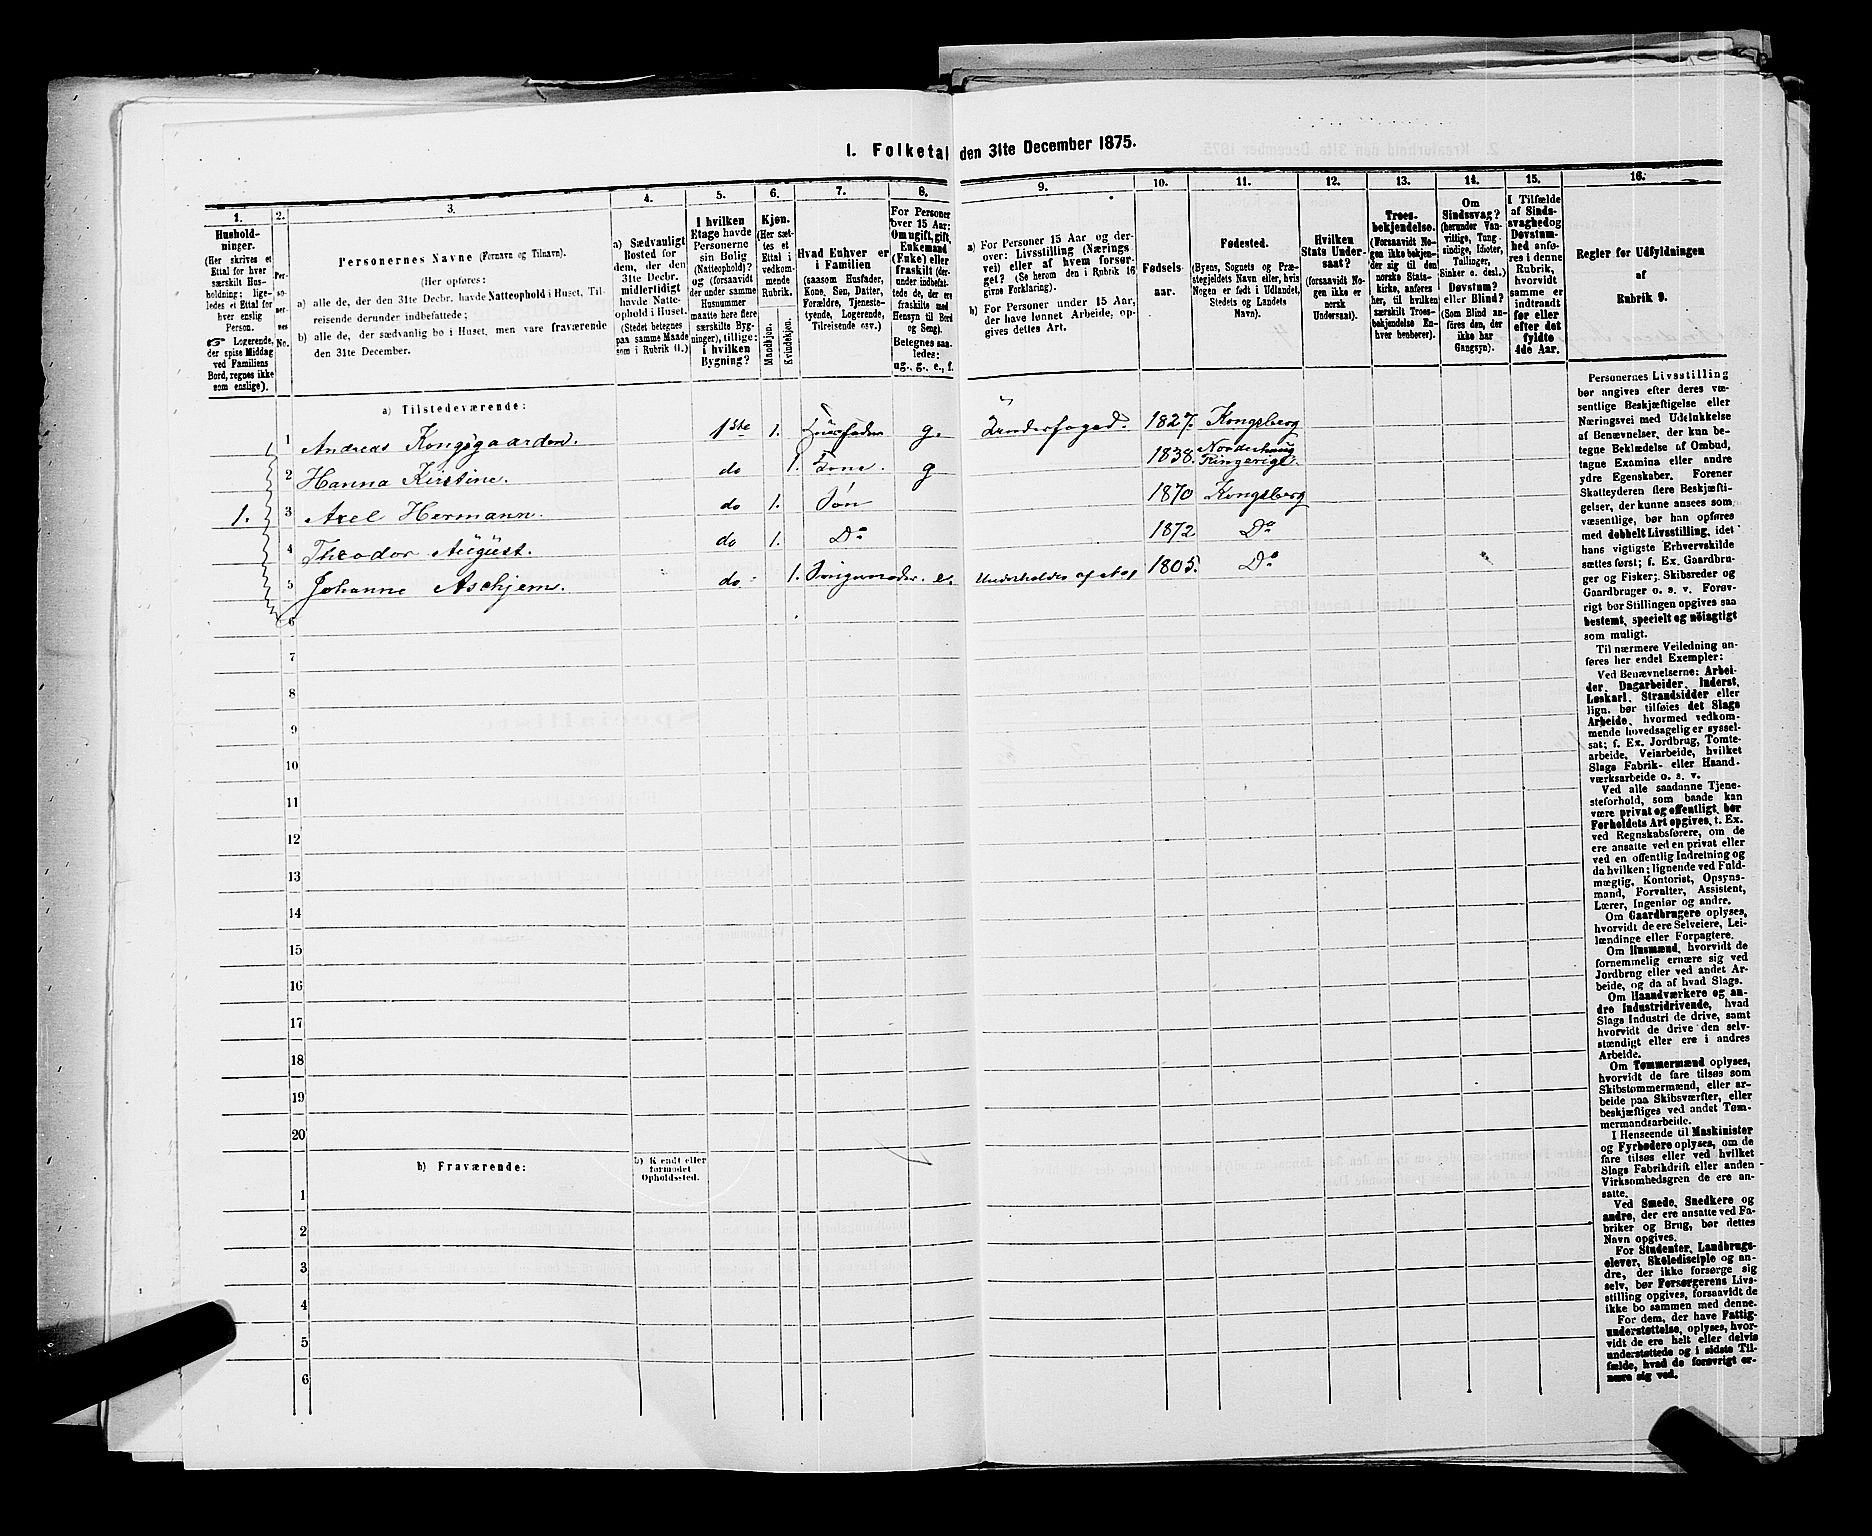 I. Folketal den 31te December 1875.
1.
Hushold-
ninger.
(Her skrives et
Ettal for hver
særskilt Hus-
holdning; lige-
ledes et Ettal for
hver enslig
Person.
☞ Logerende,
der spise Middag
ved Familiens
Bord, regnes ikke
som enslige).
2.
Per-
so-
ner-
nes
No.
3.
Personernes Navne (Fornavn og Tilnavn).
(Her opføres:
a) alle de, der den 31te Decbr. havde Natteophold i Huset, Til-
reisende derunder indbefattede;
b) alle de, der sædvanlig bo i Huset, men vare fraværende
den 31te December.
4.
a) Sædvanligt
Bosted for
dem, der den
31te Decbr.
midlertidigt
havde Natte-
ophold i Huset.
(Stedet betegnes
paa samme Maade
som i Rubrik 11.)
5.
I hvilken
Etage havde
Personerne
sin Bolig
(Natteophold)?
og (forsaavidt
der under samme
Husnummer
maatte høre flere
særskilte Byg-
ninger), tillige:
i hvilken
Bygning?
6.
Kjøn.
(Her sæt-
tes et
Ettal i
vedkom-
mende
Rubrik.
Mandkjøn.
Kvindekjøn.
7.
Hvad Enhver er
i Familien
(saasom Husfader,
Kone, Søn, Datter,
Forældre, Tjeneste-
tyende, Logerende,
Tilreisende osv.)
8.
For Personer
over 15 Aar:
Om ugift, gift,
Enkemand
(Enke) eller
fraskilt (der-
under indbefat-
tede de, der ere
fraskilte med
Hensyn til Bord
og Seng).
Betegnes saa-
ledes:
ug., g., e., f.
9.
a) For Personer 15 Aar og der-
over: Livsstilling (Nærings-
vei) eller af hvem forsør-
get? (Se herom den i Rubrik 16
givne Forklaring).
b) For Personer under 15 Aar,
der have lønnet Arbeide, op-
gives dettes Art.
10.
Fødsels-
aar.
11.
Fødested.
(Byens, Sognets og Præ-
stegjeldets Navn eller, hvis
Nogen er født i Udlandet,
Stedets og Landets
Navn).
12.
Hvilken
Stats Under-
saat?
(forsaavidt No-
gen ikke er
norsk
Undersaat).
13.
Troes-
bekjendelse.
(Forsaavidt No-
gen ikke bekjen-
der sig til den
norske Stats-
kirke, anføres
her, til hvilken
særskilt Troes-
bekjendelse En-
hver henhører).
14.
Om
Sindssvag?
(herunder Van-
vittige, Tung-
sindige, Idioter,
Tullinger,
Sinker o. desl.)
Døvstum?
eller Blind?
(Som Blind an-
føres den, der
ikke har
Gangsyn).
15.
I Tilfælde
af Sinds-
svaghed og
Døvstum-
hed anfø-
res i denne
Rubrik,
hvorvidt
samme er
indtraadt
før eller
efter det
fyldte
4de Aar.
16.
Regler for Udfyldningen
af
Rubrik 9.
a) Tilstedeværende:
1 Andreas Kongsgaarden. 1ste 1. Huusfader g. Lænderfoged. 1827. Kongsberg
2 Hanna Kirstine. do 1. Kone. g 1838. Norderhoug Ringerige.
1. 3 Axel Hermann. do 1. Søn 1870 Kongsberg
4 Theodor August. do 1. Do 1872 Do
5 Johanne Aschjem. do 1. e. Underholdes af 1805. Do
6
7
8
9
10
11
12
13
14
15
16
17
18
19
20
b) Fraværende:
b) Kjendt eller
formodet
Opholdssted.
1
2
3
4
5
6
Personernes Livsstilling
bør angives efter deres væ-
sentlige Beskjæftigelse eller
Næringsvei med Udelukkelse
af Benævnelser, der kun be-
tegne Beklædelse af Ombud,
tagne Examina eller andre
ydre Egenskaber. Forener
Skatteyderen flere Beskjæfti-
gelser, der kunne ansees som
væsentlige, bør han opføres
med dobbelt Livsstilling, idet
hans vigtigste Erhvervskilde
sættes først; f. Ex. Gaardbru-
ger og Fisker; Skibsreder og
Gaardbruger o. s. v. Forøv-
rigt bør Stillingen opgives saa
bestemt, specielt og nöiagtigt
som muligt.
Til nærmere Veiledning an-
føres her endel Exempler:
Ved Benævnelserne: Arbei-
der, Dagarbeider, Inderst,
Løskarl, Strandsidder eller
lign. bør tilføies det Slags
Arbeide, hvormed vedkom-
mende hovedsagelig er syssel-
sat; f. Ex. Jordbrug, Tomte-
arbeide, Veiarbeide, hvilket
Slags Fabrik- eller Haand-
værksarbeide o. s. v.
Ved alle saadanne Tjene-
steforhold, som baade kan
være privat og offentligt, bør
Forholdets Art opgives, t. Ex.
ved Regnskabsførere, om de
ere ansatte ved en privat eller
ved en offentlig Indretning og
da hvilken; lignende ved Fuld-
mægtig, Kontorist, Opsyns-
mand, Forvalter, Assistent,
Lærer, Ingeniør og andre.
Om Gaardbrugere oplyses,
hvorvidt de ere Selveiere, Lei-
lændinge eller Forpagtere.
Om Husmænd, hvorvidt de
fornemmelig ernære sig ved
Jordbrug eller ved andet Ar-
beide, og da af hvad Slags.
Om Haandværkere og an-
dre Industridrivende, hvad
Slags Industri de drive, samt
hvorvidt de drive den selv-
stændigt eller ere i andres
Arbeide.
Om Tømmermænd oplyses,
hvorvidt de fare tilsøs som
Skibstømmermænd, eller ar-
beide paa Skibsværfter, eller
beskjæftiges ved andet Tøm-
mermandsarbeide.
I Henseende til Maskinister
og Fyrbødere oplyses, om de
fare tilsøs eller ved hvilket
Slags Fabrikdrift eller anden
Virksomhedsgren de ere an-
satte.
Ved Smede, Snedkere og
andre, der ere ansatte ved Fa-
briker og Brug, bør dettes
Navn opgives.
For Studenter, Landbrugs-
elever, Skoledisciple og an-
dre, der ikke forsørge sig
selv, bør Forsørgerens Livs-
stilling opgives, forsaavidt de
ikke bo sammen med denne.
For dem, der have Fattig-
understøttelse, oplyses, hvor-
vidt de ere helt eller delvis
understøttede og i sidste Til-
fælde, hvad de forøvrigt er-
nære sig ved.